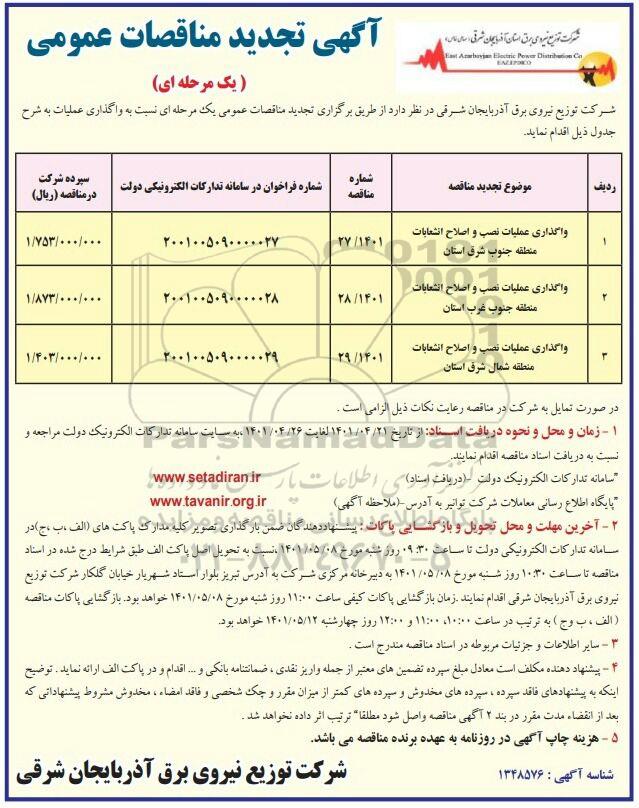 آگهی تجدید مناقصات عمومی
شرکت توزیع نیروی برق استان آذربایجان شرقی (سهامی خاص)
East Azarbayjan Electric Power Distribution Co
EAZEPDICO
( یک مرحله ای)
شرکت توزیع نیروی برق آذربایجان شرقی در نظر دارد از طریق برگزاری تجدید مناقصات عمومی یک مرحله ای نسبت به واگذاری عملیات به شرح
جدول ذیل اقدام نماید.
ردیف | موضوع تجدید مناقصه | شماره مناقصه | شماره فراخوان در سامانه تدارکات الکترونیکی دولت | سپرده شرکت درمناقصه (ریال)
۱ | واگذاری عملیات نصب و اصلاح انشعابات منطقه جنوب شرق استان | ۲۷ /۱۴۰۱ | ۲۰۰۱۰۰۵۰۹۰۰۰۰۰۲۷ | ۱/۷۵۳/۰۰۰/۰۰۰
۲ | واگذاری عملیات نصب و اصلاح انشعابات منطقه جنوب غرب استان | ۲۸ /۱۴۰۱ | ۲۰۰۱۰۰۵۰۹۰۰۰۰۰۲۸ | ۱/۸۷۳/۰۰۰/۰۰۰
۳ | واگذاری عملیات نصب و اصلاح انشعابات منطقه شمال شرق استان | ۲۹ /۱۴۰۱ | ۲۰۰۱۰۰۵۰۹۰۰۰۰۰۲۹ | ۱/۴۰۳/۰۰۰/۰۰۰
در صورت تمایل به شرکت در مناقصه رعایت نکات ذیل الزامی است .
۱ - زمان و محل و نحوه دریافت اسناد: از تاریخ ۱۴۰۱/۰۴/۲۱ لغایت ۱۴۰۱/۰۴/۲۶ ،به سایت سامانه تدارکات الکترونیک دولت مراجعه و
نسبت به دریافت اسناد مناقصه اقدام نمایند.
"سامانه تدارکات الکترونیک دولت -(دریافت اسناد) www.setadiran.ir
"پایگاه اطلاع رسانی معاملات شرکت توانیر به آدرس-(ملاحظه آگهی) www.tavanir.org.ir
۲ - آخرین مهلت و محل تحویل و بازگشایی پاکات: پیشنهاددهندگان ضمن بارگذاری تصویر کلیه مدارک پاکت های (الف ،ب ،ج)در
سامانه تدارکات الکترونیکی دولت تا ساعت ۰۹:۳۰ روز شنبه مورخ ۱۴۰۱/۰۵/۰۸ ،نسبت به تحویل اصل پاکت الف طبق شرایط درج شده در اسناد
مناقصه تا ساعت ۱۰:۳۰ روز شنبه مورخ ۱۴۰۱/۰۵/۰۸ به دبیرخانه مرکزی شرکت به آدرس تبریز بلوار استاد شهریار خیابان گلکار شرکت توزیع
نیروی برق آذربایجان شرقی اقدام نمایند .زمان بازگشایی پاکات کیفی ساعت ۱۱:۰۰ روز شنبه مورخ ۱۴۰۱/۰۵/۰۸ خواهد بود. بازگشایی پاکات مناقصه
( الف ، ب وج ) به ترتیب در ساعت ۱۰:۰۰، ۱۱:۰۰ و ۱۲:۰۰ روز چهارشنبه ۱۴۰۱/۰۵/۱۲ خواهد بود.
۳ - سایر اطلاعات و جزئیات مربوطه در اسناد مناقصه مندرج است .
۴ - پیشنهاد دهنده مکلف است معادل مبلغ سپرده تضمین های معتبر از جمله واریز نقدی ، ضمانتنامه بانکی و ... اقدام و در پاکت الف ارائه نماید . توضیح
اینکه به پیشنهادهای فاقد سپرده ، سپرده های مخدوش و سپرده های کمتر از میزان مقرر و چک شخصی و فاقد امضاء ، مخدوش مشروط پیشنهاداتی که
بعد از انقضاء مدت مقرر در بند ۲ آگهی مناقصه واصل شود مطلقا" ترتیب اثر داده نخواهد شد .
۵ - هزینه چاپ آگهی در روزنامه به عهده برنده مناقصه می باشد.
شناسه آگهی : ۱۳۴۸۵۷۶
شرکت توزیع نیروی برق آذربایجان شرقی
ParsNamadData
۰۲۱-۸۸۳۴۹۶۷۰-۵